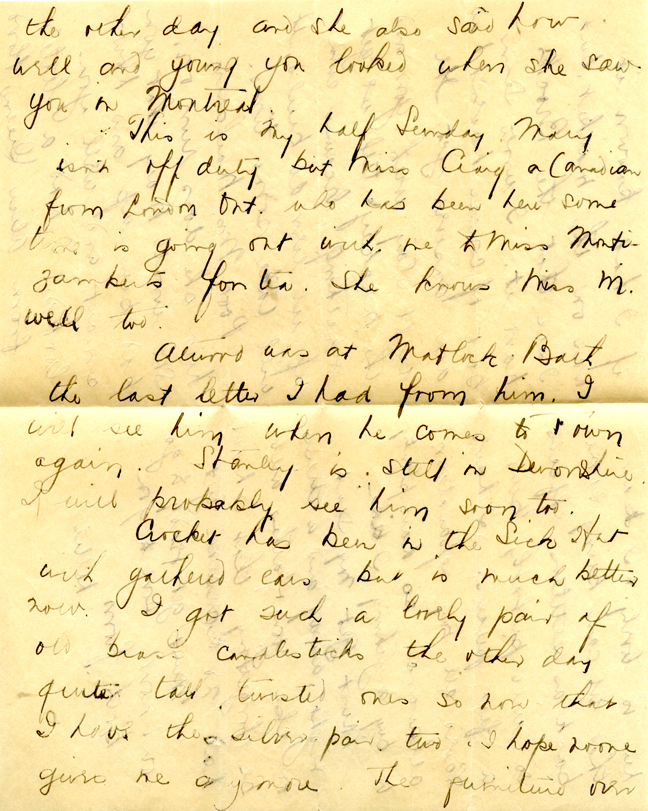 the other day and she also said how
well and young you looked when she saw
you in Montreal.
This is my half Sunday Mary
isn't off duty but Miss Craig a Canadian
from London Ont. who has been here some
time is going out with me to Miss Monti-
zamberts for tea. She knows Miss M.
well too.
was at Matlock Bath
the last letter I had from him. I
will see him when he comes to town
again. Stanley is still in Devonshire.
I will probably see him soon too.
Crocket has been in the Sick Hut
with gathered ears but is much better
now. I got such a lovely pair of
old brass candlesticks the other day
quite tall twisted ones so now that
I have the silver pair two. I hope noone
gives me anymore. The furniture over